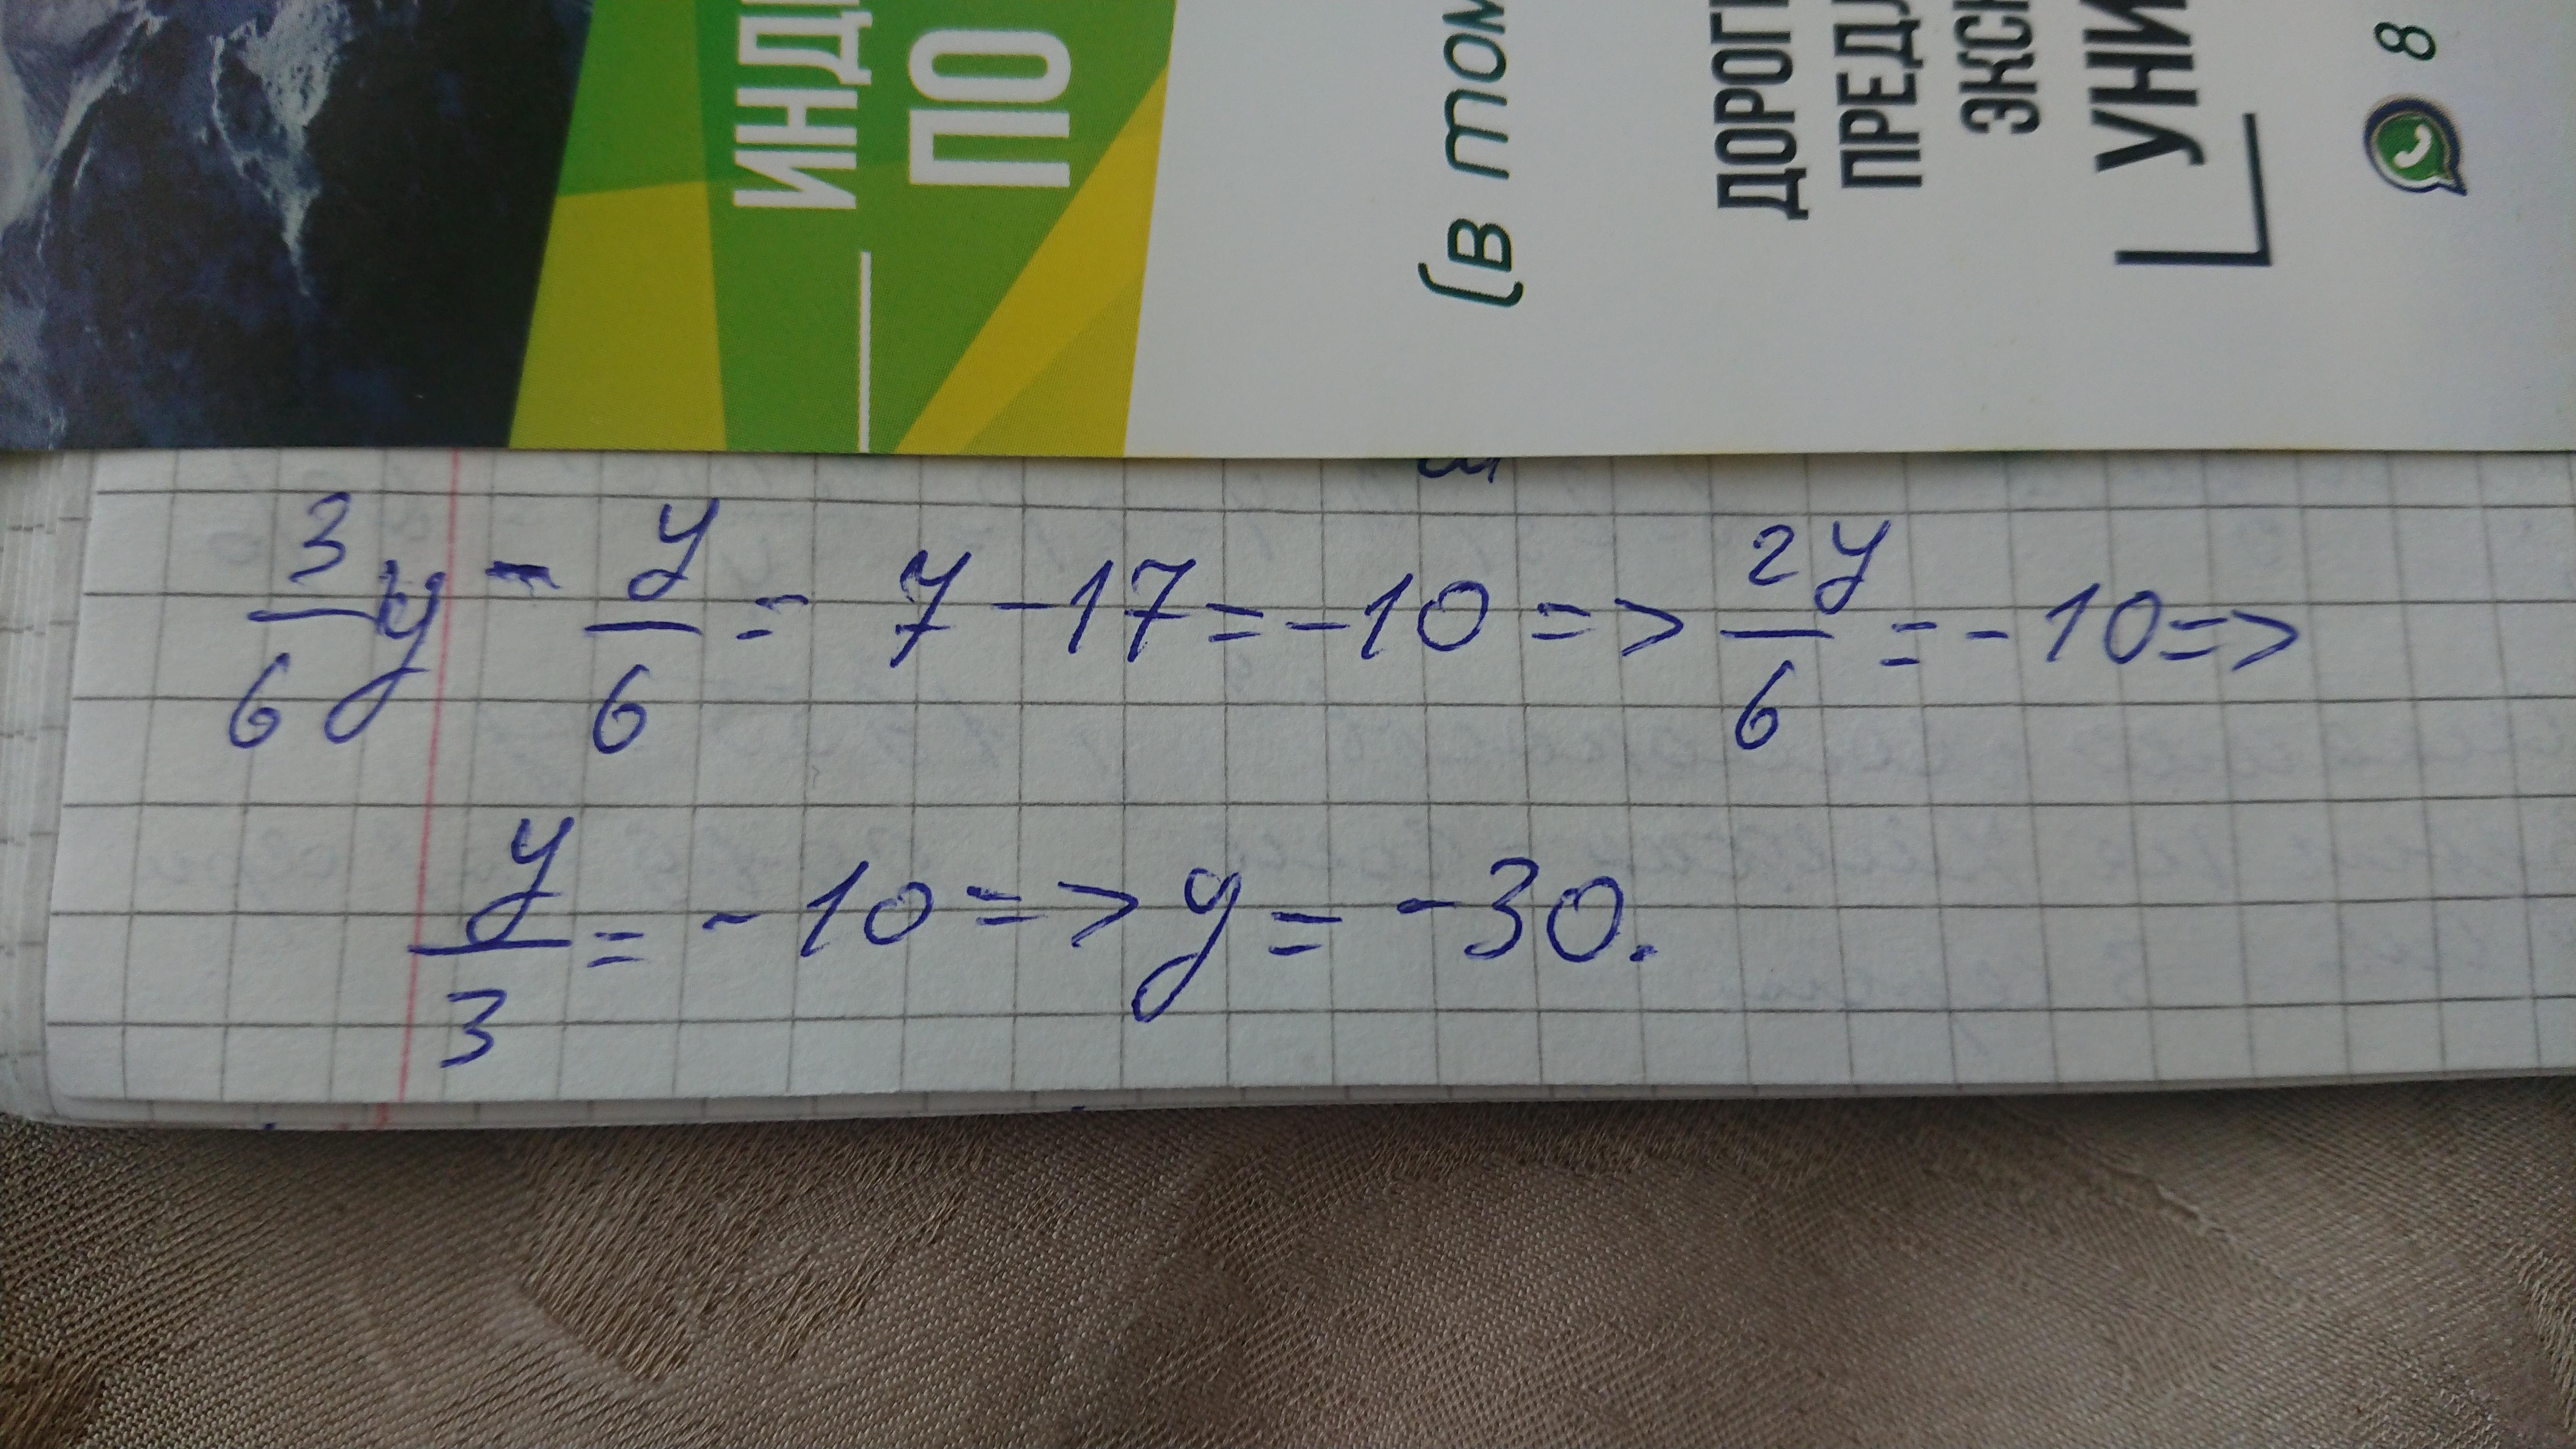 ИНДИ
ПО
(в том
ДОРОГИ
ПРЕДЛ
ЭКСК
УНИ
8
3/6 y - y/6 = 7 - 17 = -10 => 2y/6 = -10 =>
y/3 = -10 => y = -30.